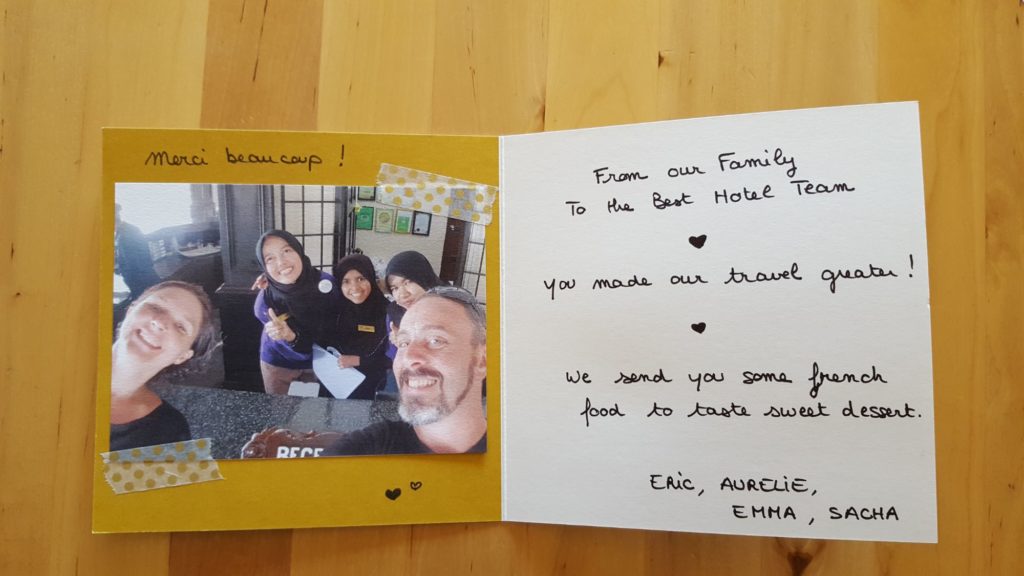 Merci beaucoup !
RECE
From our Family
To the Best Hotel Team
you made our travel greater !
we send you some french
food to taste sweet dessert.
Eric, AURELIE,
EMMA, SACHA